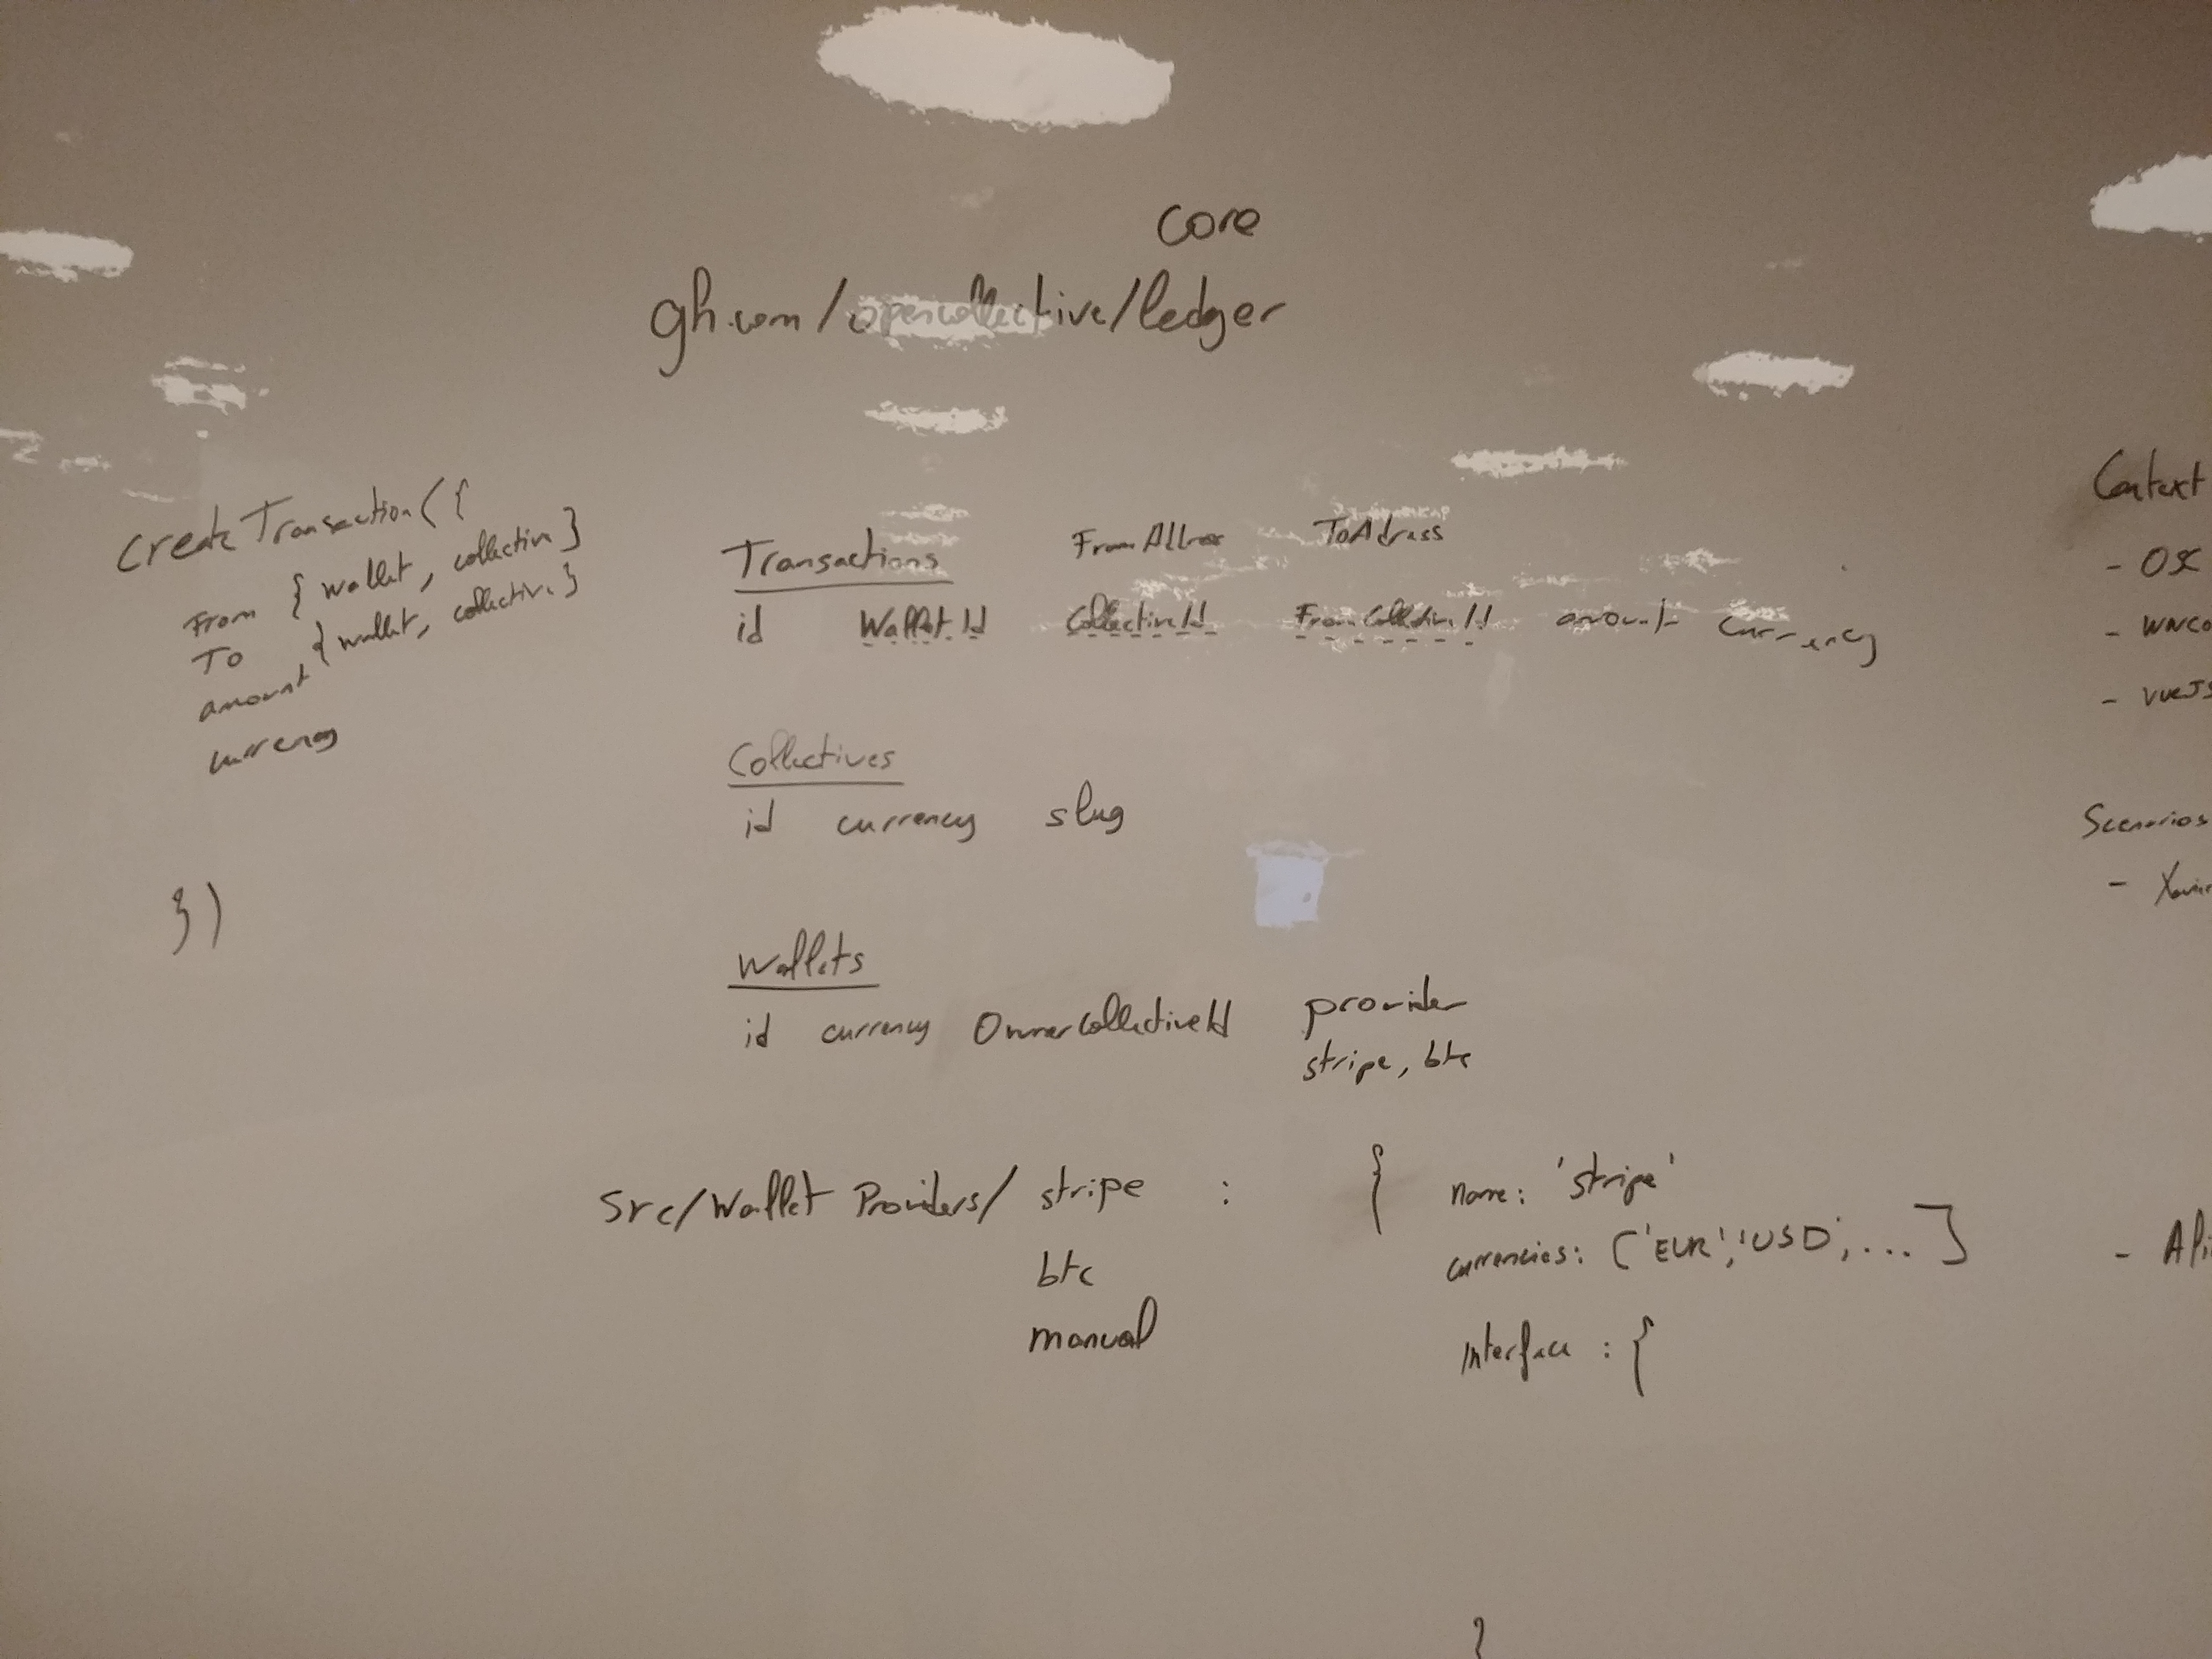 core
gh.com/opencollective/ledger
createTransaction({
From { wallet, collective}
To {wallet, collective}
amount,
currency
})
Transactions
ToAdress
id WalletId CollectiveId FromCollectiveId amount currency
Collectives
id currency slug
Wallets
id currency OwnerCollectiveId provider
stripe, btc
src/Wallet Providers/ stripe : { name: 'stripe'
btc currencies: ['EUR','USD', ... ]
manual Interface : {
}
Context
- OSC
- WWCo
- VueJS
Scenarios
- Xavier